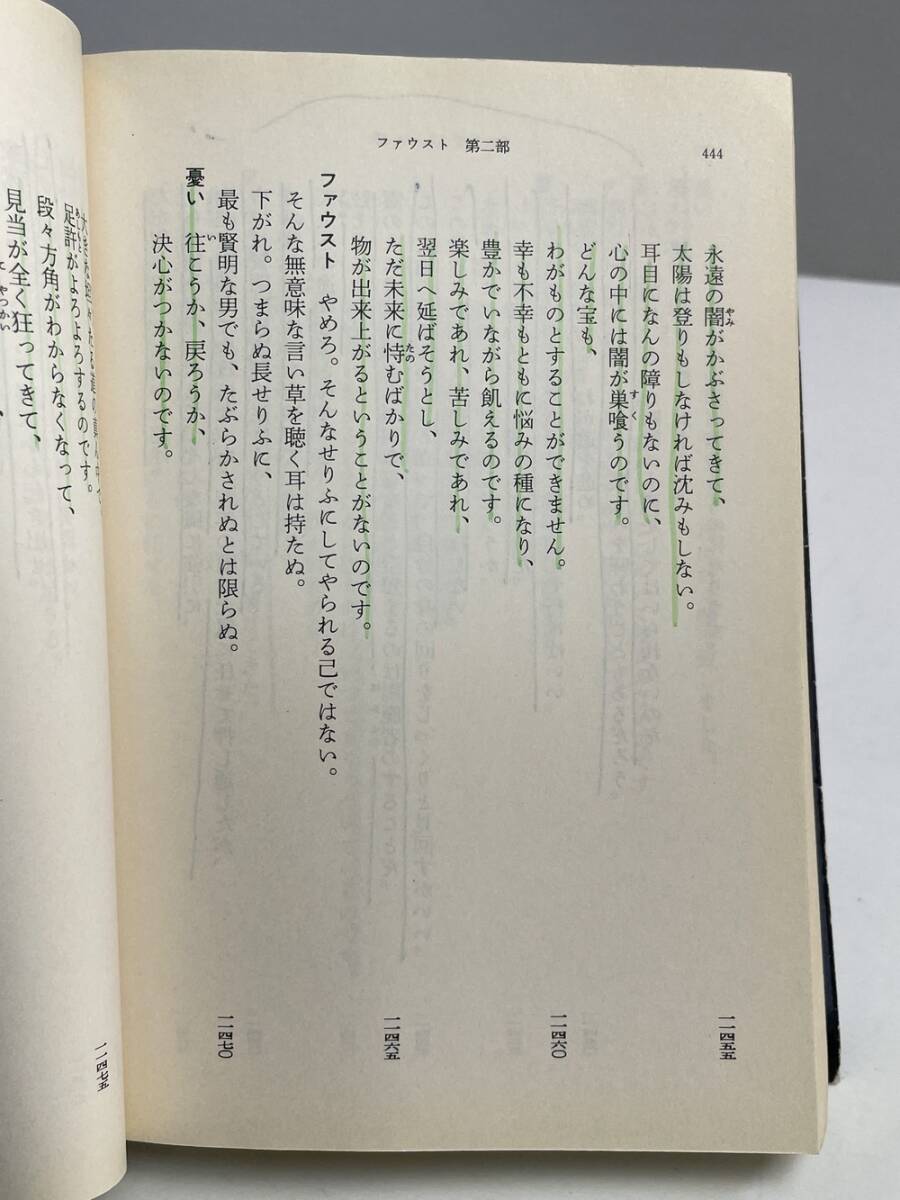 ファウスト 第二部
444
永遠の闇がかぶさってきて、
太陽は登りもしなければ沈みもしない。
耳目になんの障りもないのに、
心の中には闇が巣喰うのです。
どんな宝も、
わがものとすることができません。
幸も不幸もともに悩みの種になり、
豊かでいながら飢えるのです。
楽しみであれ、苦しみであれ、
翌日へ延ばそうとし、
ただ未来に恃むばかりで、
物が出来上がるということがないのです。
ファウスト やめろ。そんなせりふにしてやられる己ではない。
そんな無意味な言い草を聴く耳は持たぬ。
下がれ。つまらぬ長せりふに、
最も賢明な男でも、たぶらかされぬとは限らぬ。
憂い 往こうか、戻ろうか、
決心がつかないのです。
一一四五五
一一四六〇
一一四六五
一一四七〇
足許がよろよろするのです。
段々方角がわからなくなって、
見当が全く狂ってきて、
一一四七五